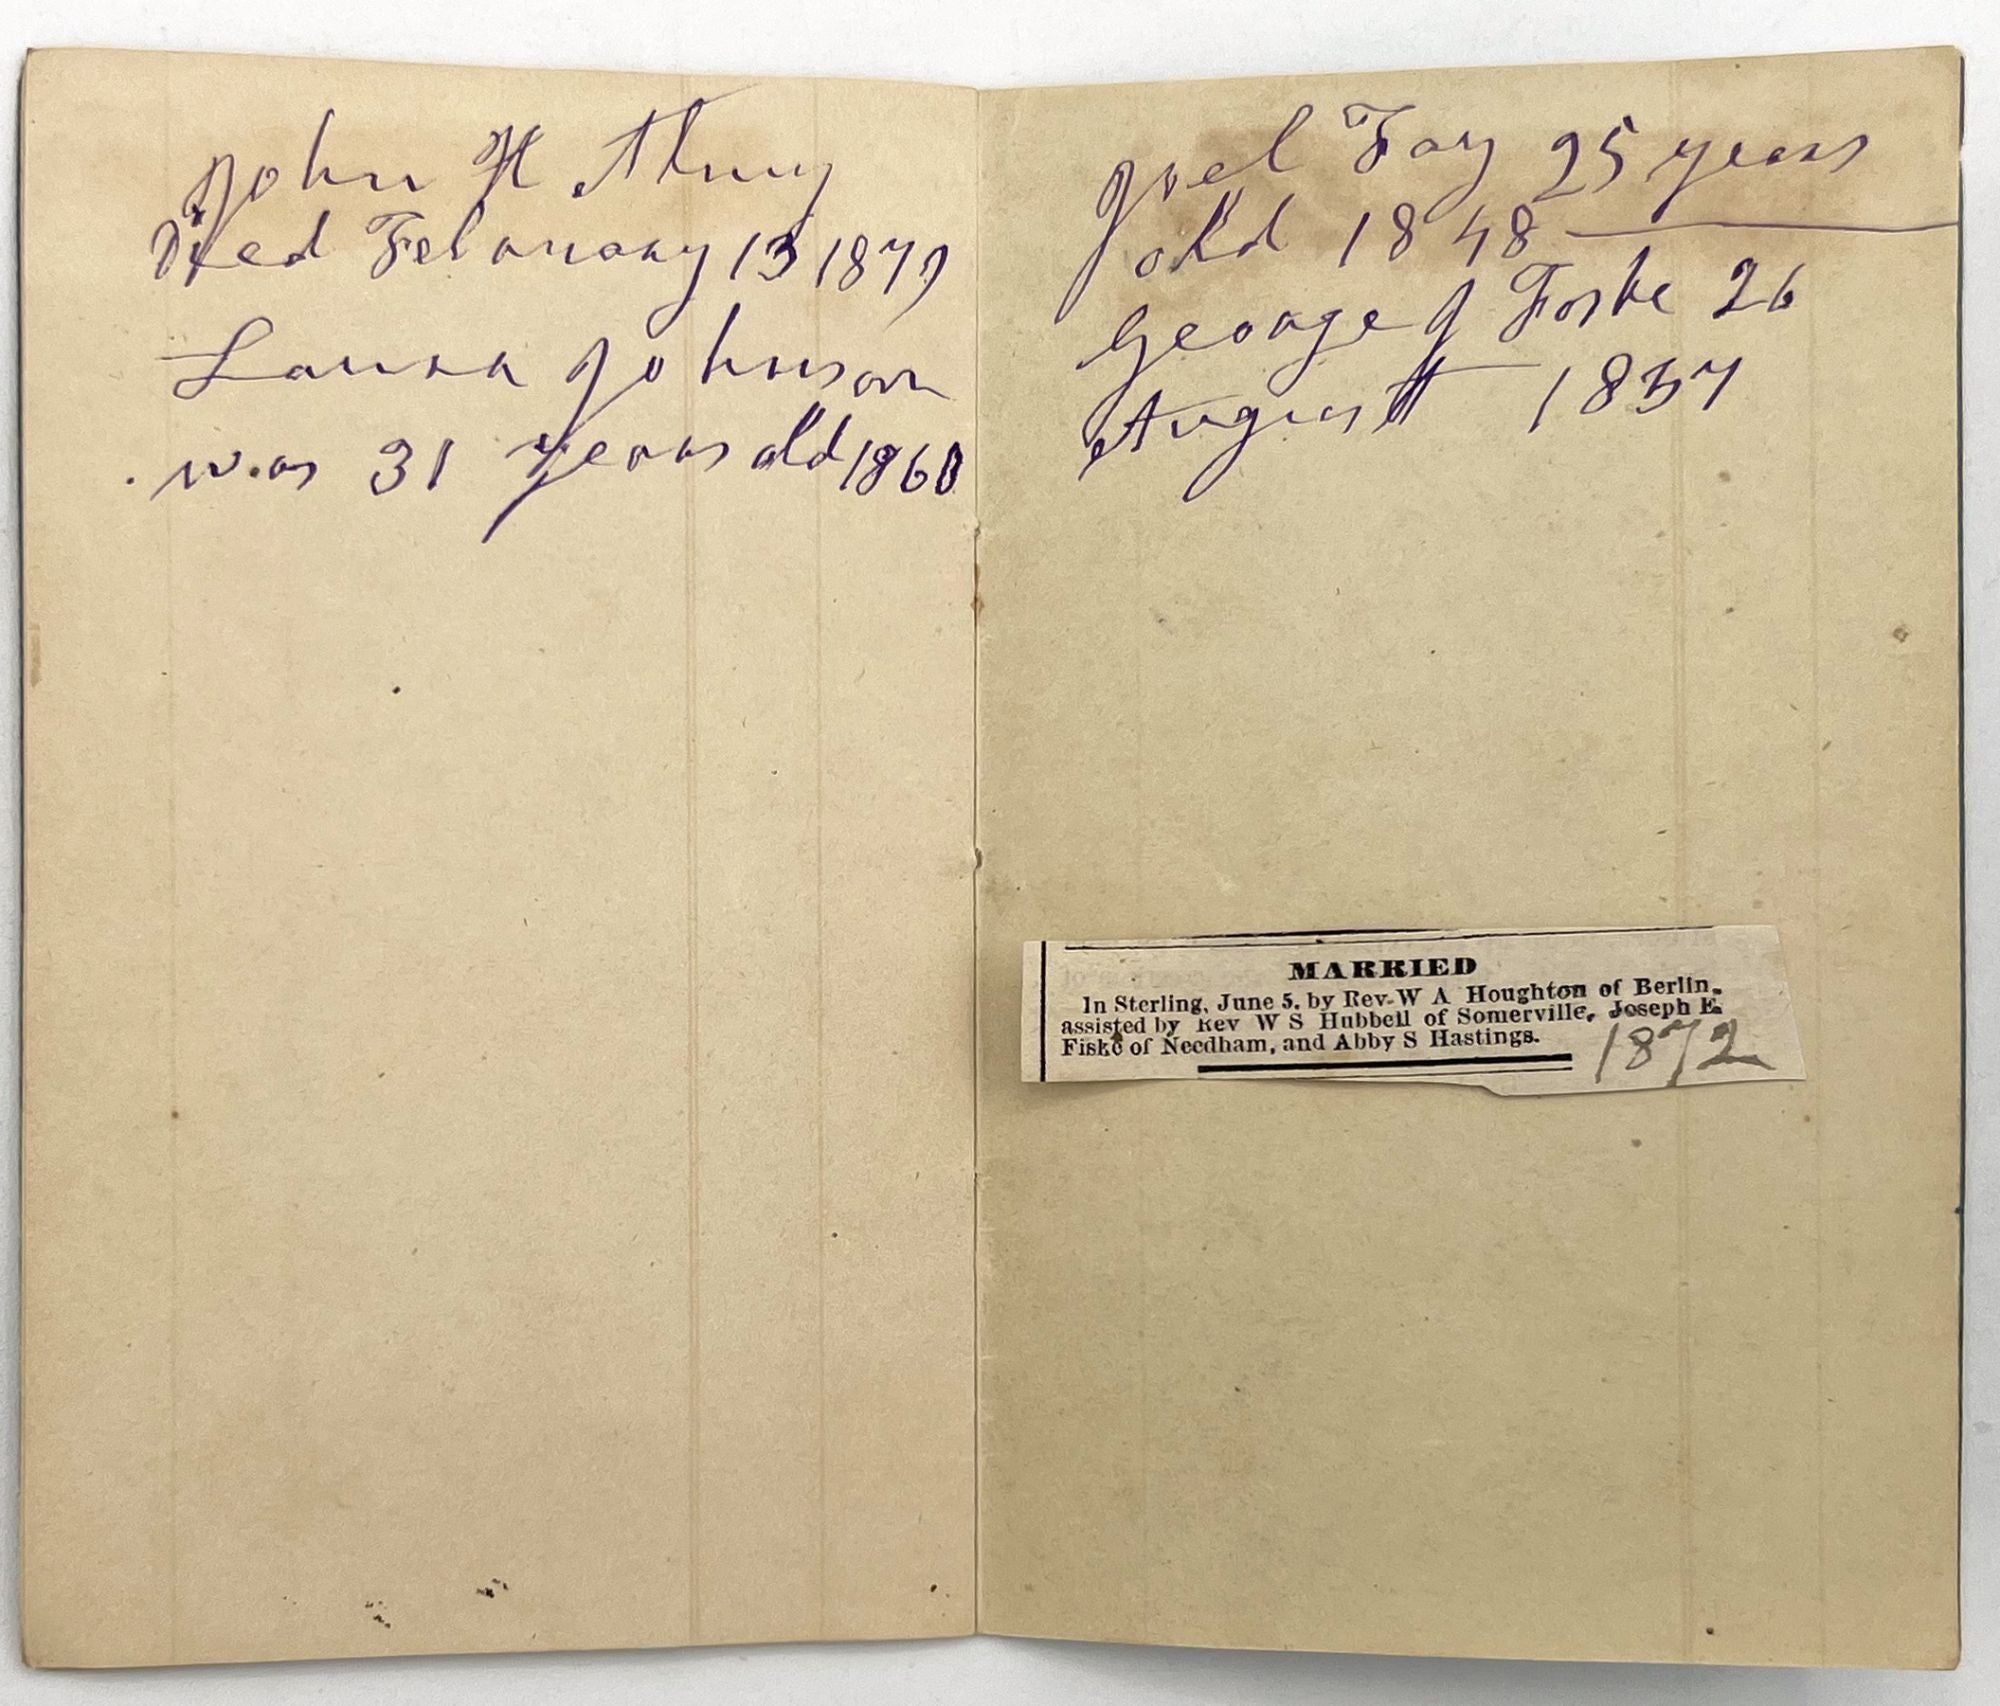 John H
Died February 13 1879
Laura Johnson
was 31 years old 1860
Joel Fay 25 years
old 1848
George J Fiske 26
August 1857
MARRIED
In Sterling, June 5, by Rev. W A Houghton of Berlin,
assisted by Rev W S Hubbell of Somerville, Joseph E.
Fiske of Needham, and Abby S Hastings.
1872